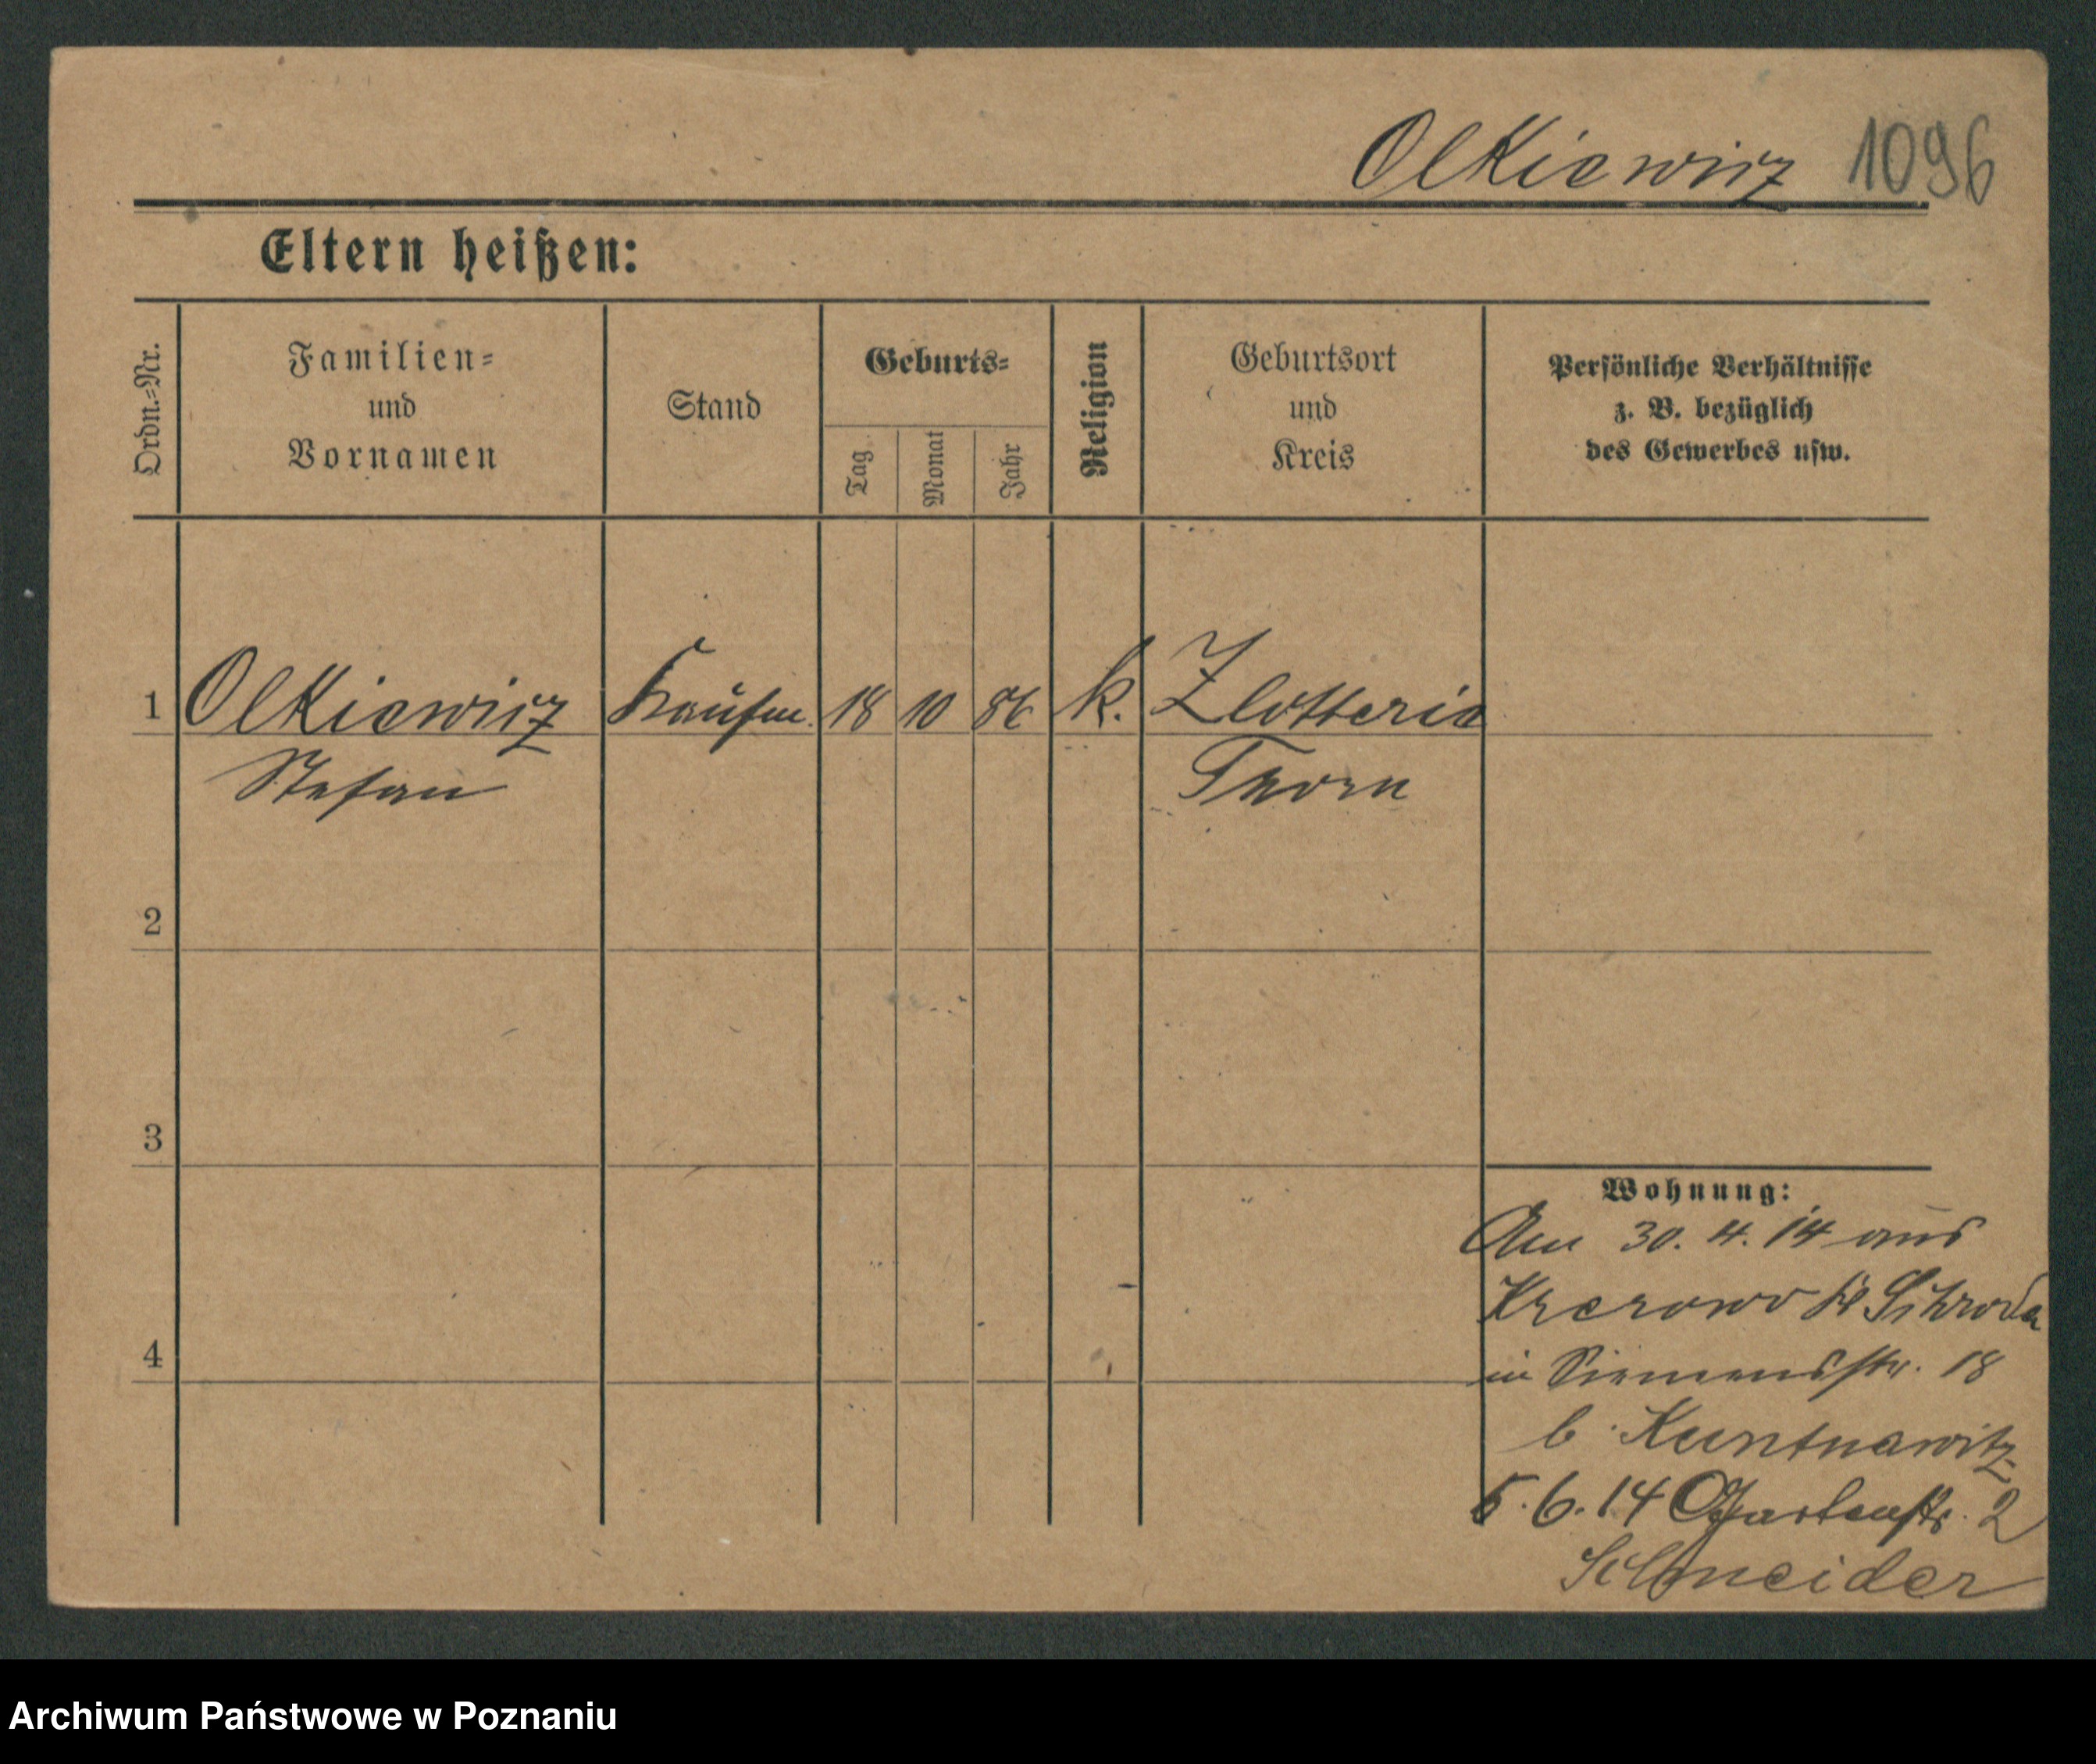 Olkiewicz 1096
Eltern heißen:
Ordn.=Nr.
Familien=
und
Vornamen
Stand
Geburts=
Tag
Monat
Jahr
Religion
Geburtsort
und
Kreis
Persönliche Verhältnisse
z. B. bezüglich
des Gewerbes usw.
1 Olkiewicz Kaufm. 18 10 86 k. Zlotteria
Stefan Thorn
2
3
4
Wohnung:
Am 30. 4. 14 aus
Krerowo Kr Schroda
in Siemensstr. 18
b.
5. 6. 14 Gartenstr. 2
Schneider
Archiwum Państwowe w Poznaniu